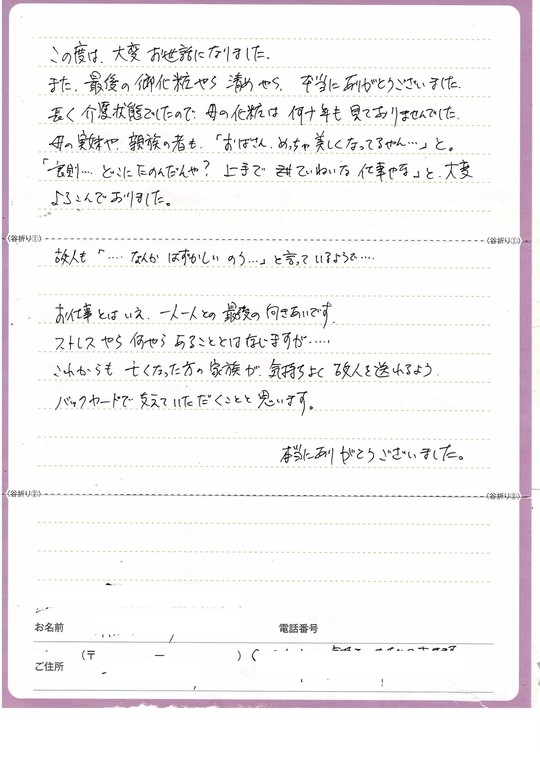 この度は、大変お世話になりました。
また、最後の御化粧やら清めやら、本当にありがとうございました。
長く介護状態でしたので、母の化粧は何十年も見ておりませんでした。
母の実妹や、親族の者も、「おばさん、めっちゃ美しくなってるやん…」と。
どこにたのんだんや? 上手で ていねいな仕事やな」と、大変
よろこんでおりました。
(谷折り①) (谷折り①)
故人も「‥‥なんかはずかしいのう…」と言っているようで‥‥
お仕事とはいえ、一人一人との最後の向きあいです。
ストレスやら何やらあることとはなじますが‥‥‥
これからも 亡くなった方の家族が、気持ちよく故人を送れるよう、
バックヤードで支えていただくことと思います。
本当にありがとうございました。
(谷折り②) (谷折り②)
お名前 電話番号
(〒 ー )
ご住所